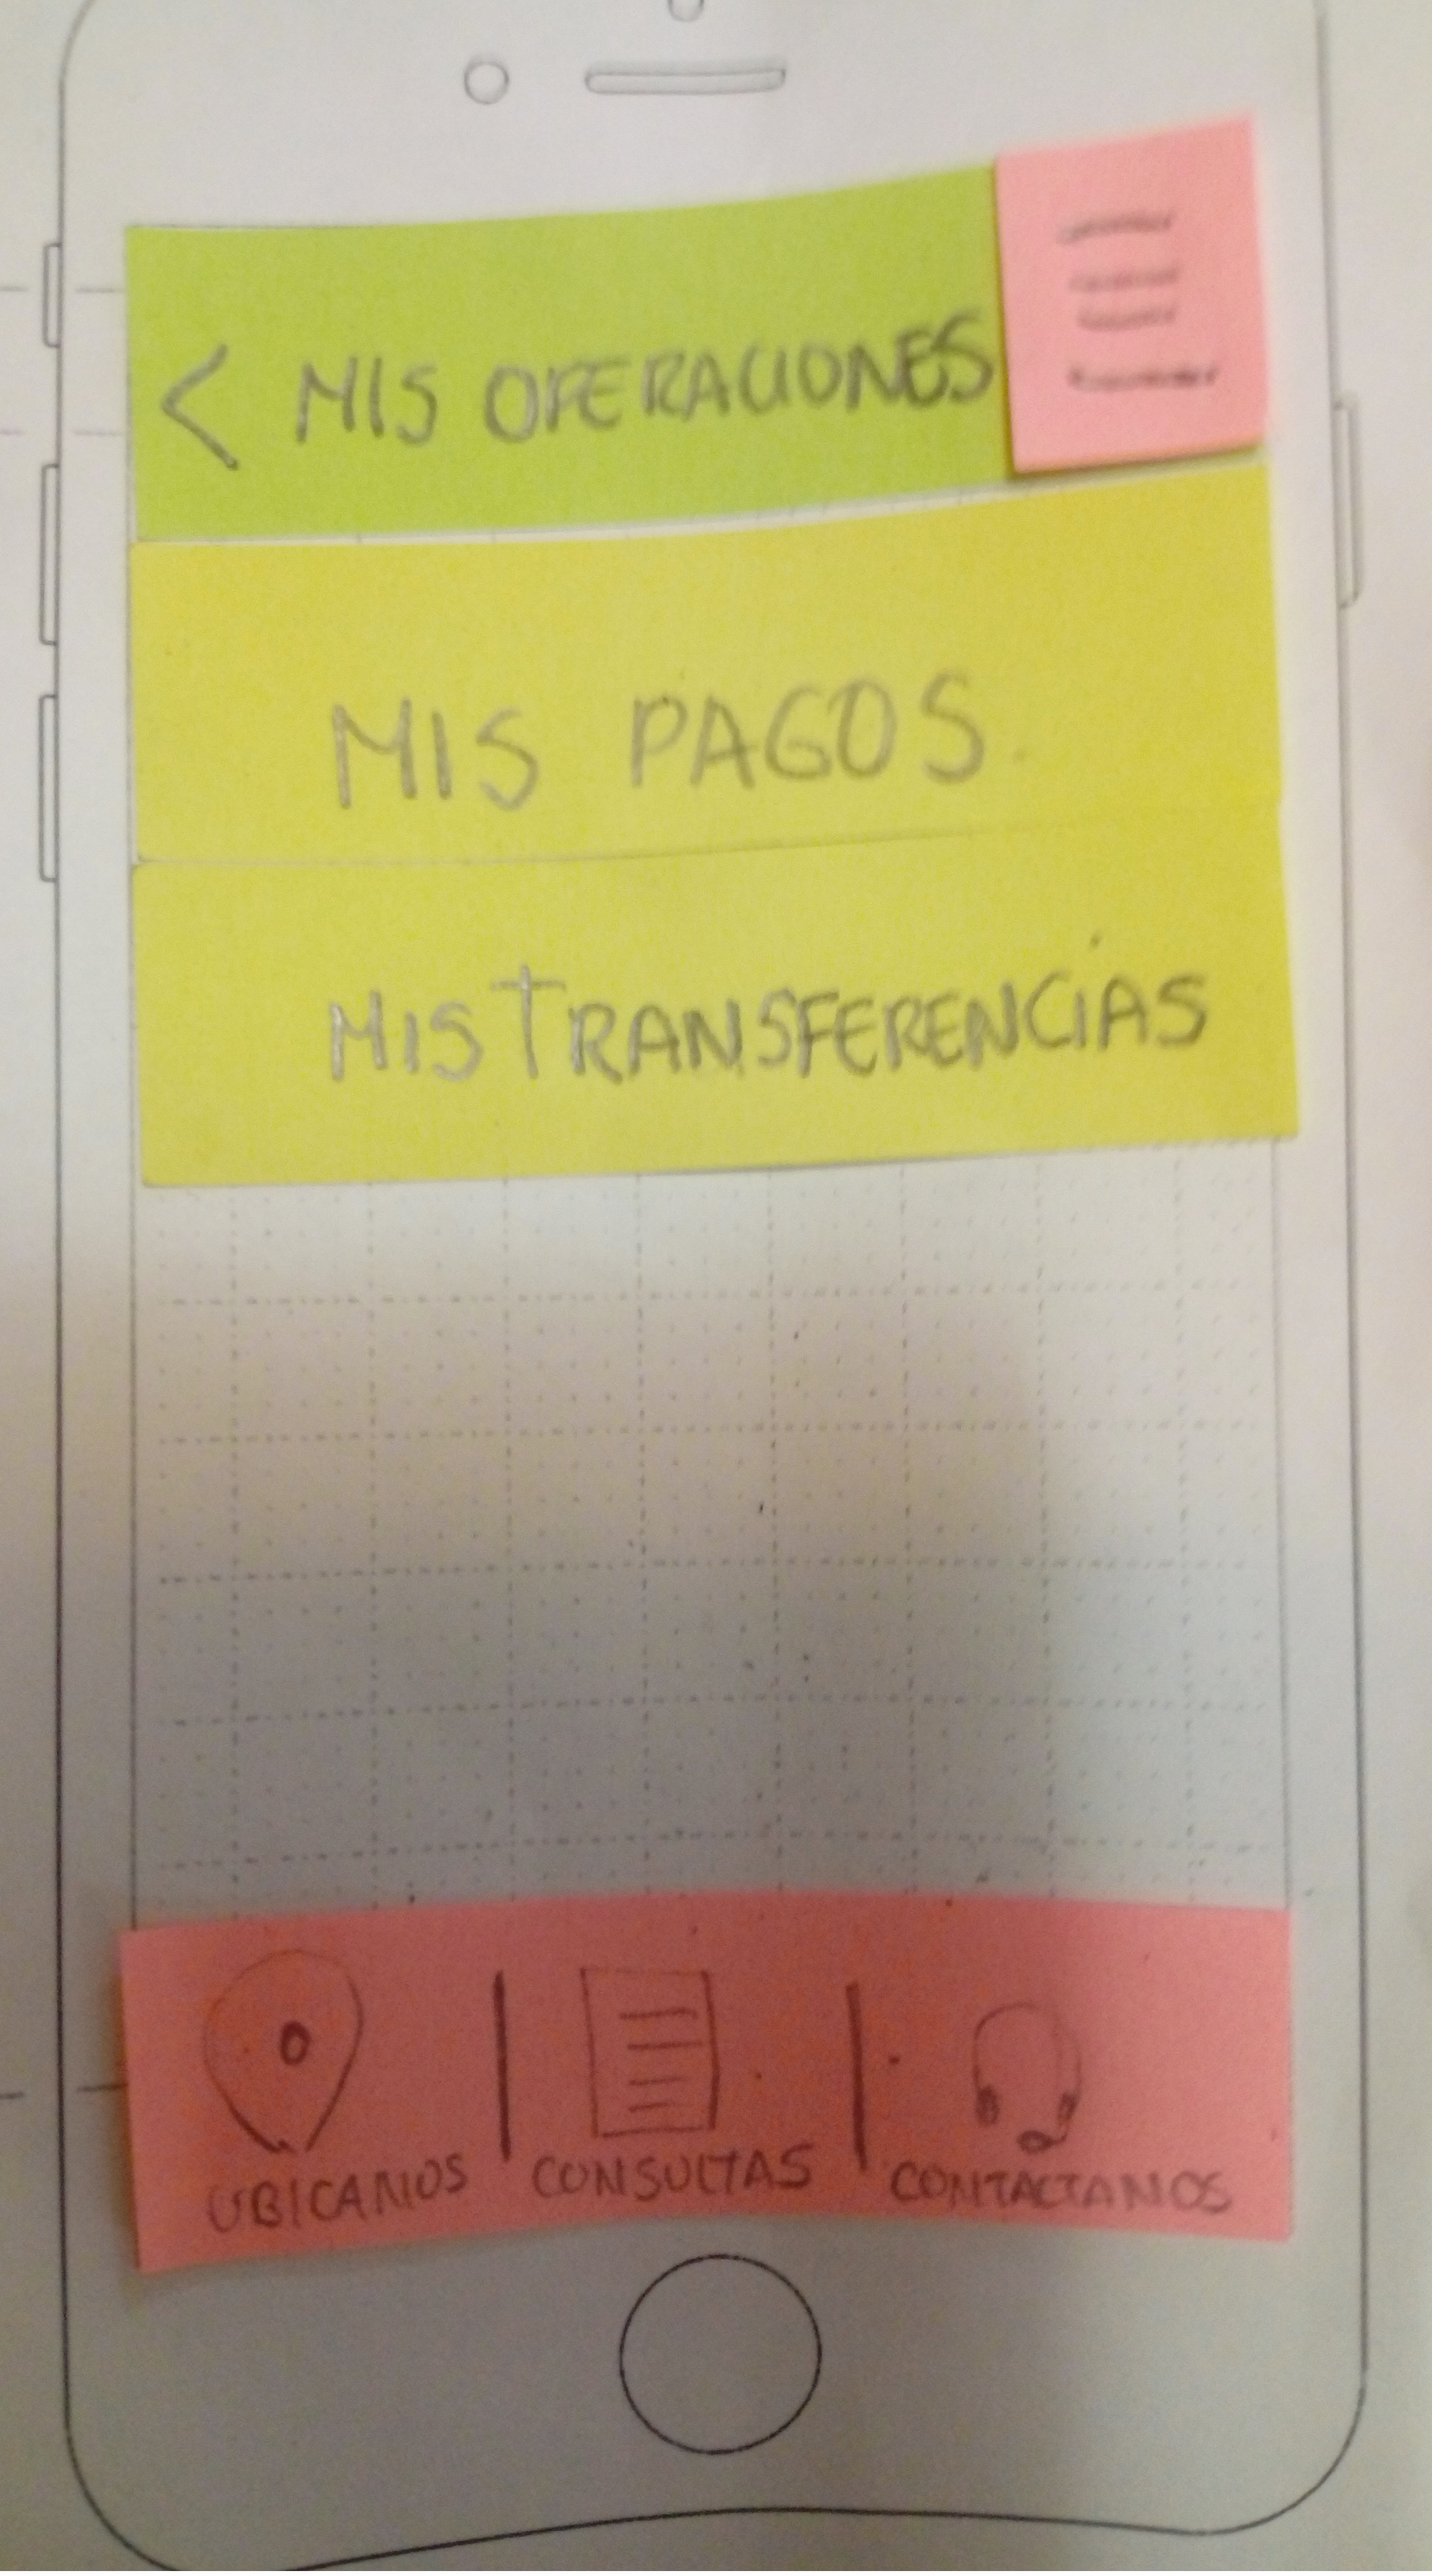 < MIS OPERACIONES
MIS PAGOS
MIS TRANSFERENCIAS
UBICANOS | CONSULTAS | CONTACTANOS